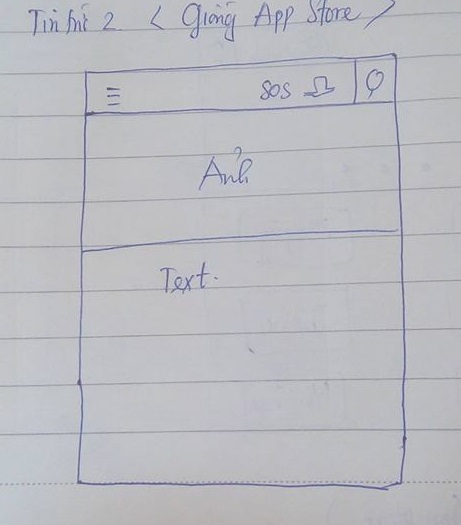 Tin tức 2 < Giống App Store >
SOS
Ảnh
Text.